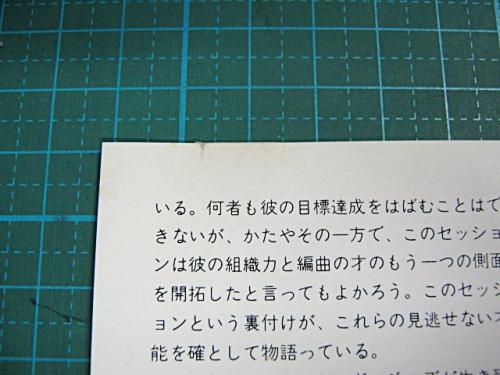 いる。何者も彼の目標達成をはばむことはで
きないが、かたやその一方で、このセッショ
ンは彼の組織力と編曲の才のもう一つの側面
を開拓したと言ってもよかろう。このセッシ
ョンという裏付けが、これらの見逃せない才
能を確として物語っている。